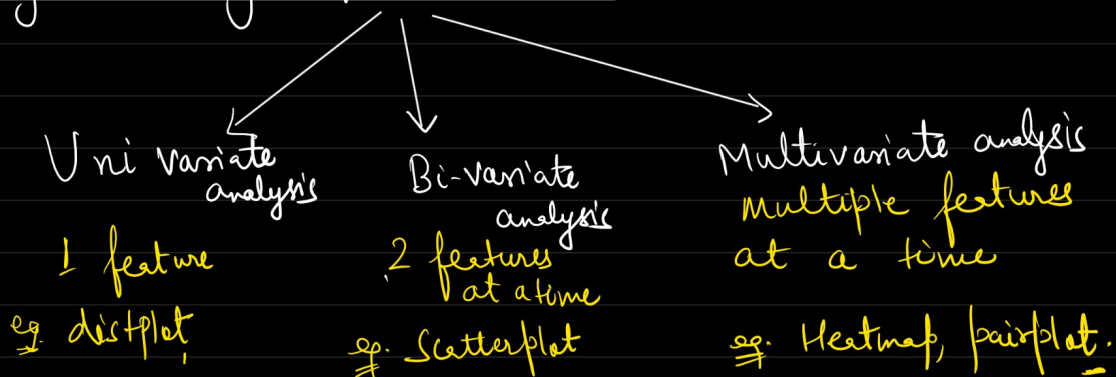 Uni variate analysis
1 feature
eg. distplot
Bi-variate analysis
2 features at a time
eg. Scatterplot
Multivariate analysis
Multiple features
at a time
eg. Heatmap, pairplot.